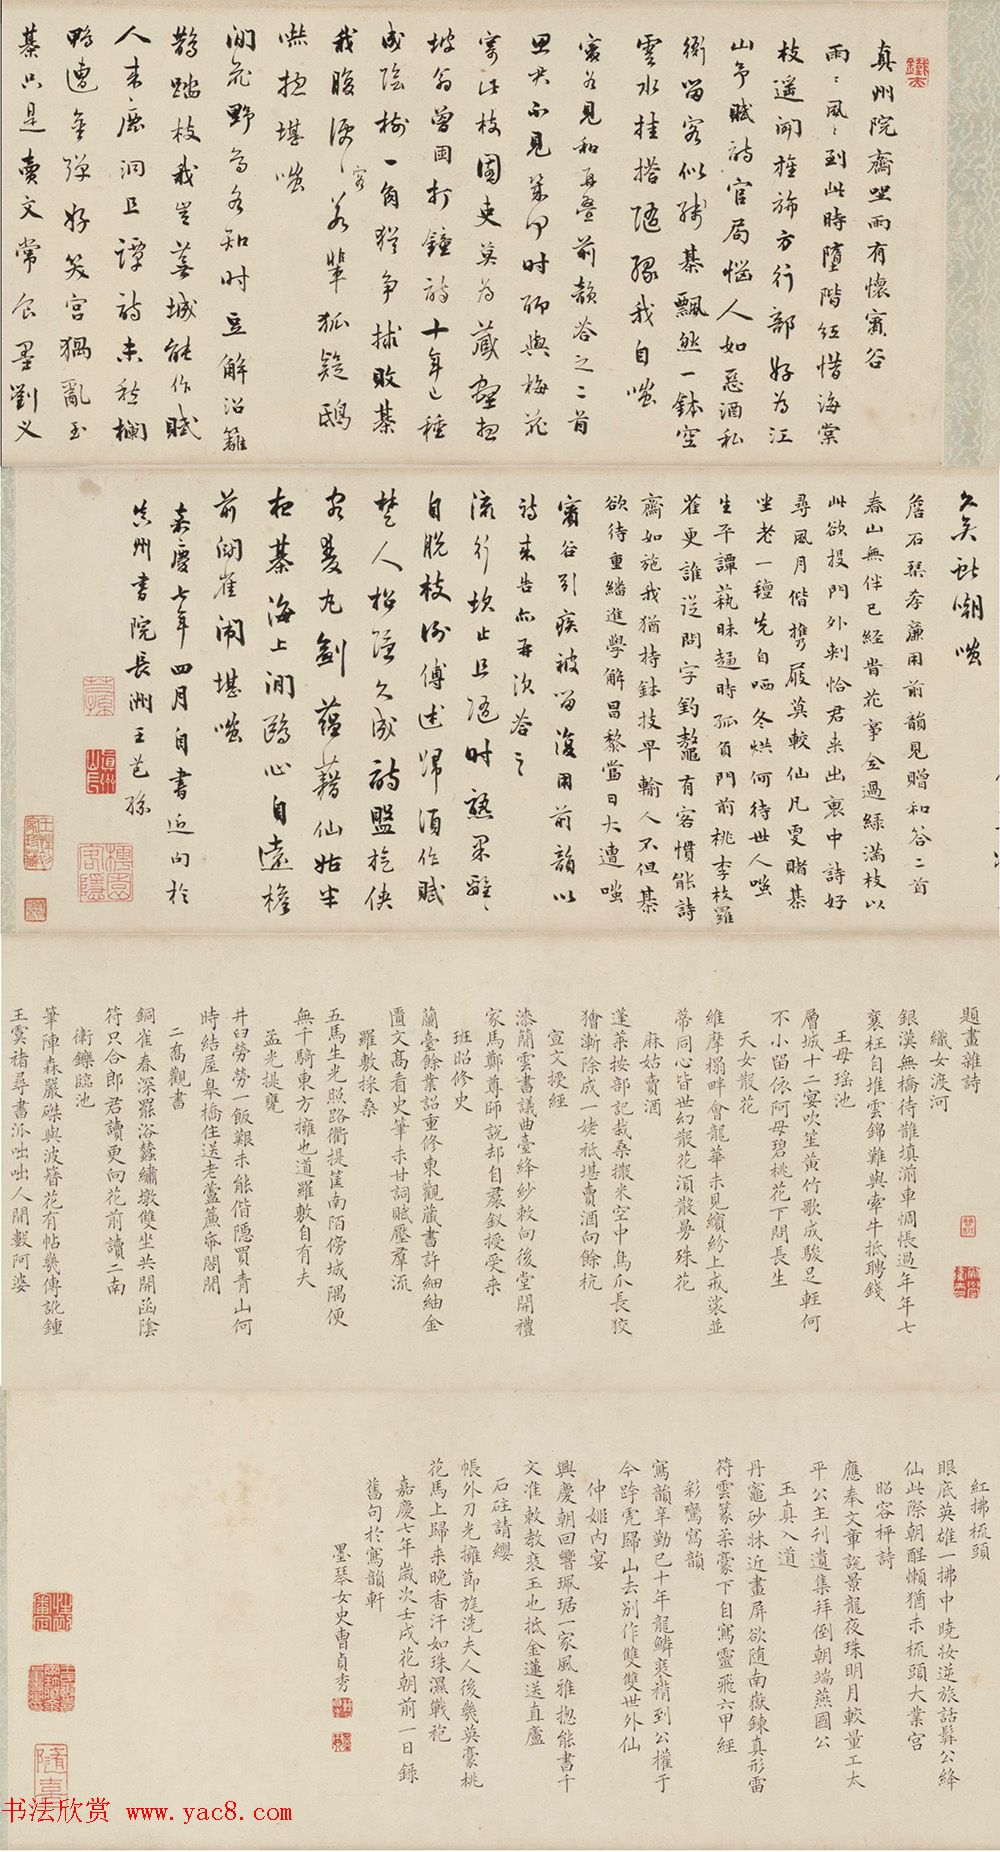 真州院齋坐雨有懷賓谷
雨雨風風到此時墮階紅惜海棠
枝遥開旌旆方行部好為江
山多賦詩官局惱人如惡酒私
衙留客似殘棊飄然一鉢空
雲水挂搭隨緣我自嗤
賓谷見和再疊前韻答之二首
思君不見第即時聊與梅花
寄此枝園吏莫為藏壑
坡翁曾因打鐘詩十年已種
成陰樹一角猶争採敗棊
我腹便便若輩狐疑鴟
嚇抵堪嗤
澗花野鳥各知時豆解沿籬
鵲踏枝我豈蕪城能作賦
人来鹿洞且譚詩未愁欄
鴨遭金彈好笑宮猧亂玉
棊只是賣文常食墨劉义
久矣被嘲嗤
詹石琴孝廉用前韻見贈和答二首
春山無伴已經貲花事全過綠滿枝以
此欲投門外刺恰君来出裏中詩好
尋風月偕攜屐莫較仙凡雯賭棊
坐老一氈先自哂冬烘何待世人嗤
生平譚藝昧趨時孤負門前桃李枝羅
雀更誰從問字釣鼇有客慣能詩
齋如施我猶持鉢技早輸人不但棊
欲待重繙進學解昌黎當日大遭嗤
賓谷引疾被留復用前韻以
詩来告亦再次答之
流行坎止且隨時熟果離離
自脱枝彷傅述歸須作賦
楚人招隱久成詩盤旋俠
客雙丸劍蘊藉仙姑半
夜棊海上閒鷗心自遠檐
前鬭雀鬧堪嗤
嘉慶七年四月自書近句於
真州書院長洲王芑孫
題畫雜詩
織女渡河
銀漢無橋待鵲填湔車惆悵過年年七
襄枉自堆雲錦難與牽牛抵聘錢
王母瑶池
層城十二宴吹笙黄竹歌成駿足輕何
不小留依阿母碧桃花下問長生
天女散花
維摩榻畔會龍華未見繽紛上戒裟並
蒂同心皆世幻散花須散曼殊花
麻姑賣酒
蓬萊按部記裁桑擲米空中鳥爪長狡
獪漸除成一姥祇堪賣酒向餘杭
宣文授經
漆簡雲書議曲臺絳紗敕向後堂開禮
家馬鄭尊師説却自裙釵授受来
班昭修史
蘭臺餘業詔重修東觀藏書許細紬金
匱文高看史筆未甘詞賦壓羣流
羅敷採桑
五馬生光照路衢提筐南陌傍城隅便
無千騎東方擁也道羅敷自有夫
孟光提甕
井臼勞勞一飯艱未能偕隱買青山何
時結屋皋橋住送老蘆簾帘閤閒
二喬觀書
銅雀春深罷浴蠶繡墩雙坐共開函陰
符只合郎君讀更向花前讀二南
衛鑠臨池
筆陣森嚴磔與波簪花有帖幾傳訛鍾
王虞褚尋書派咄咄人間數阿婆
紅拂梳頭
眼底英雄一拂中曉妝逆旅話髯公絳
仙此際朝酲懶猶未梳頭大業宮
昭容枰詩
應奉文章説景龍夜珠明月較量工太
平公主刊遺集拜倒朝端燕國公
玉真入道
丹竈砂牀近畫屏欲随南嶽鍊真形雷
符雲篆柔豪下自寫靈飛六甲經
彩鸞寫韻
寫韻辛勤已十年龍鱗裝褙到公權于
今跨虎歸山去别作雙雙世外仙
仲姬内宴
興慶朝回響珮琚一家風雅抱能書千
文准敕教裝玉也抵金蓮送直廬
石砫請纓
帳外刀光擁節旄洗夫人後幾英豪桃
花馬上歸来晚香汗如珠濕戰袍
嘉慶七年歲次壬戌花朝前一日錄
舊句於寫韻軒
墨琴女史曹貞秀
书法欣赏 www.yac8.com